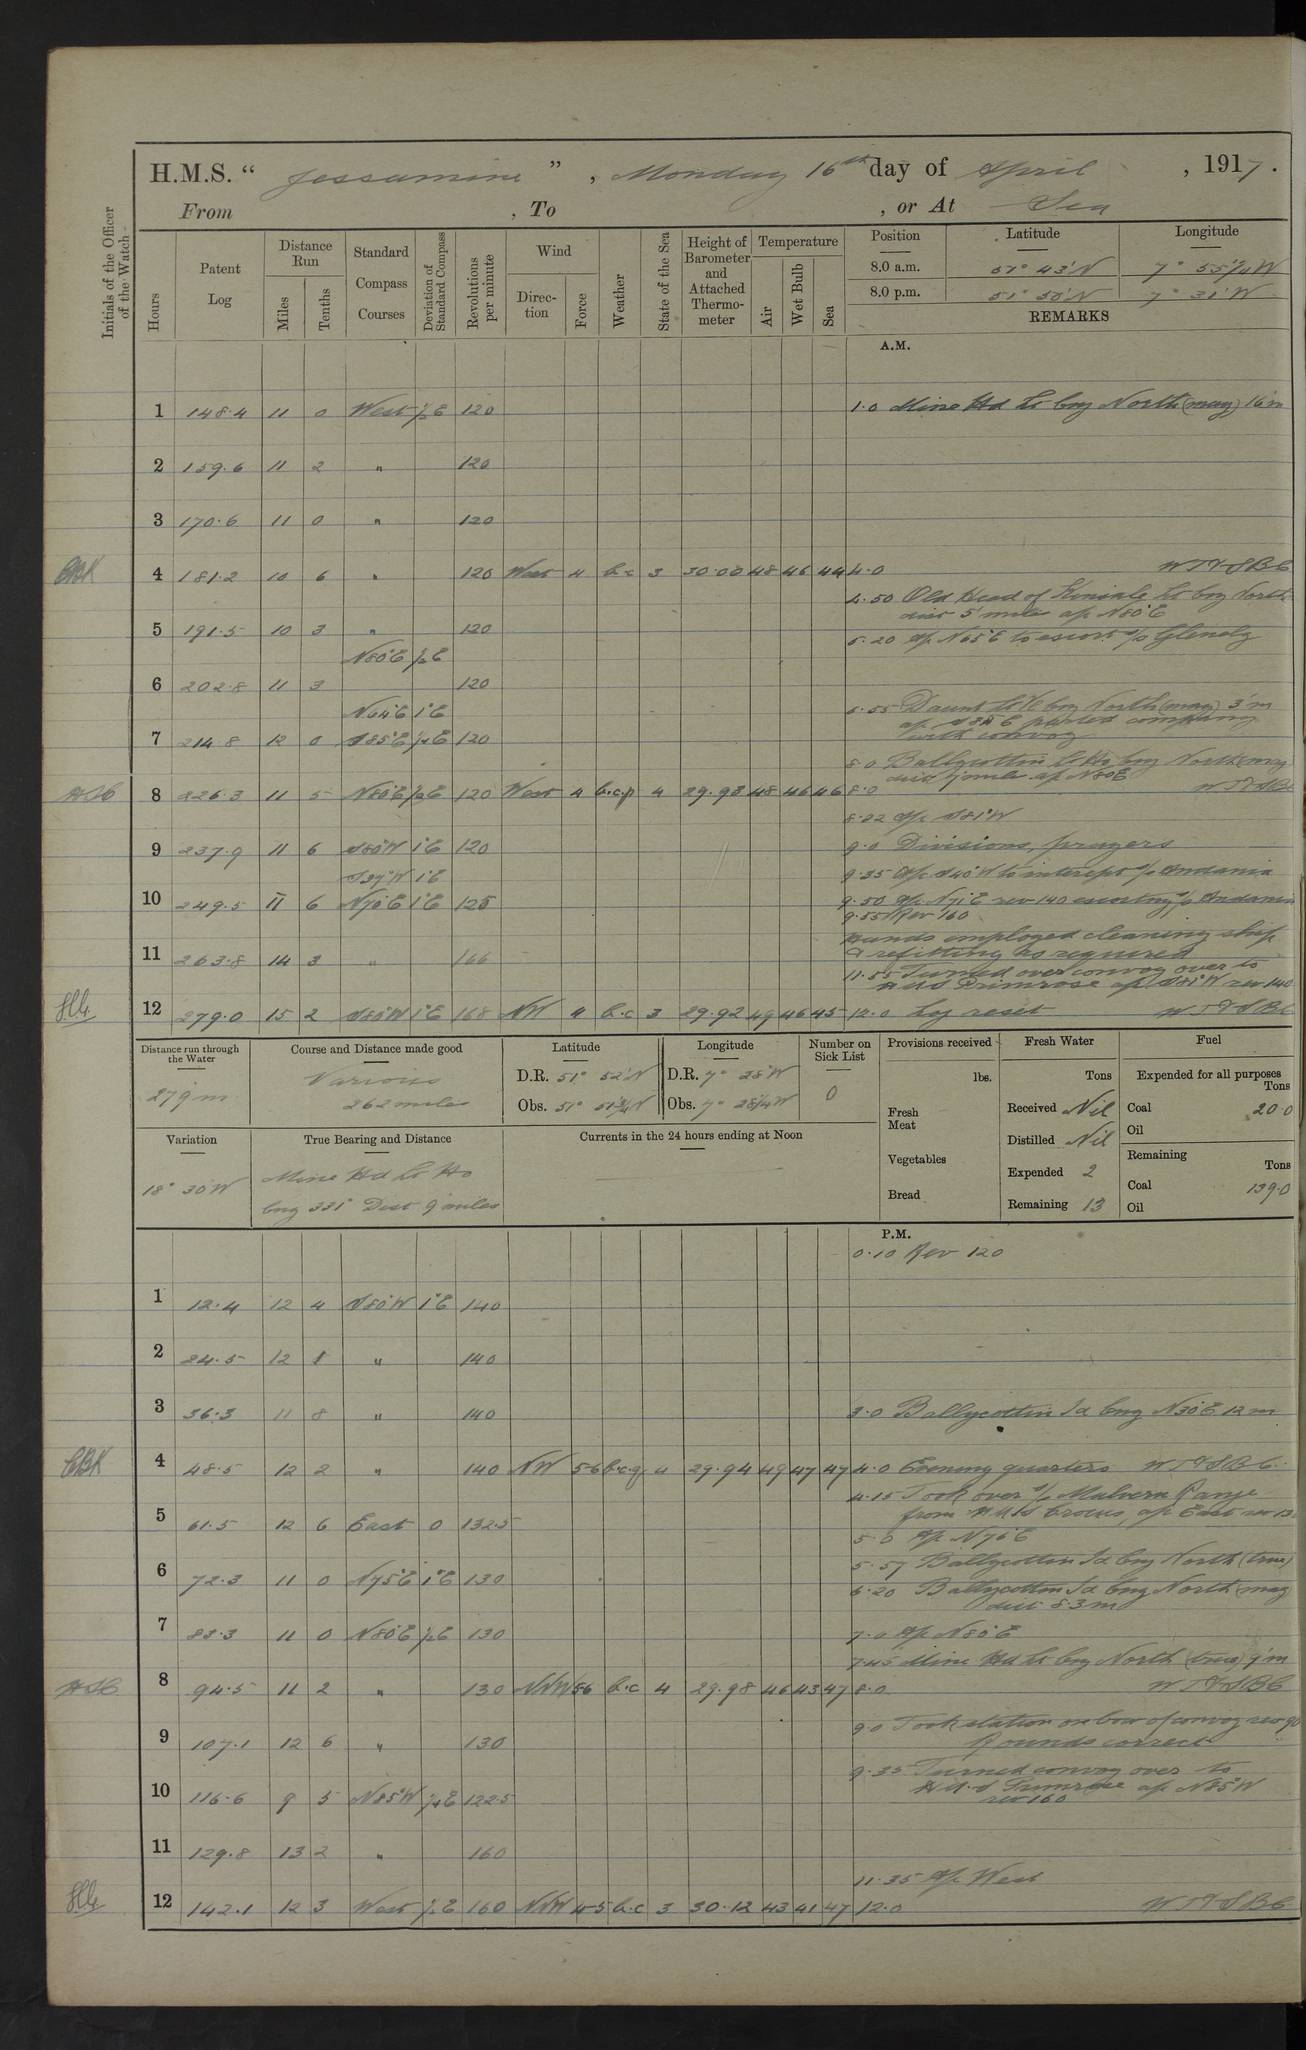 H.M.S. " Jessamine ", Monday 16th day of April, 1917.
From , To , or At Sea
Initials of the Officer of the Watch
Hours
Patent Log
Distance Run
Miles
Tenths
Standard Compass Courses
Deviation of Standard Compass
Revolutions per minute
Wind
Direction
Force
Weather
State of the Sea
Height of Barometer and Attached Thermometer
Temperature
Air
Wet Bulb
Sea
Position Latitude Longitude
8.0 a.m. 51° 43' N 7° 55¼ W
8.0 p.m. 51° 50' N 7° 31' W
REMARKS
A.M.
1 148.4 11 0 West ½E 120 1.0 Mine Hd Lt brg North (mag) 16 m
2 159.6 11 2 " 120
3 170.6 11 0 " 120
4 181.2 10 6 " 120 West 4 b.c 3 30.00 48 46 44 4.0 WT & SBC
4.50 Old Head of Kinsale Lt brg North
dist 5 mile a/c N80°E
5 191.5 10 3 " 120
5.20 A/c N65°E to escort s/s Glenelg
N80°E ½E
6 202.8 11 3 120
N64°E 1°E
6.55 Daunt Lt V brg North (mag) 3'm
a/c S85°E parted company
with convoy
7 214.8 12 0 S85°E ½E 120
8.0 Ballycottin Lt Ho brg North (mag)
a/c N80E
8 226.3 11 5 N80°E ½E 120 West 4 b.c.p 4 29.98 48 46 46 8.0 WT & SBC
8.22 A/c S81°W
9 237.9 11 6 S80°W 1°E 120 9.0 Divisions, prayers
S39°W 1°E 9.35 A/c S40°W to intercept s/s Andania
10 249.5 11 6 N70°E 1°E 125 9.50 A/c N71°E rev 140 escorting s/s Andania
9.55 Rev 160
Hands employed cleaning ship
& refitting as required
11 263.8 14 3 " 166
11.55 Turned over convoy over to
HMS Primrose a/c S81°W rev 140
12 279.0 15 2 S80°W 1°E 168 NW 4 b.c 3 29.92 49 46 45 12.0 Log reset WT & SBC
Distance run through the Water
279 m
Course and Distance made good
Various
262 miles
Latitude
D.R. 51° 52' N
Obs. 51° 51¾ N
Longitude
D.R. 7° 28' W
Obs. 7° 28¼ W
Number on Sick List
0
Provisions received
lbs.
Fresh Meat
Vegetables
Bread
Fresh Water
Tons
Received Nil
Distilled Nil
Expended 2
Remaining 13
Fuel
Expended for all purposes
Tons
Coal 20.0
Oil
Remaining
Tons
Coal 139.0
Oil
Variation
18° 30 W
True Bearing and Distance
Mine Hd Lt Ho
brg 331° Dist 9 miles
Currents in the 24 hours ending at Noon
P.M.
0.10 Rev 120
1 12.4 12 4 S80°W 1°E 140
2 24.5 12 1 " 140
3 36.3 11 8 " 140 3.0 Ballycottin Id brg N30°E 12 m
4 48.5 12 2 " 140 NW 5-6 b.c.q 4 29.94 49 47 47 4.0 Evening quarters WT & SBC
4.15 Took over s/s Malvern Range
from HMS Crocus, a/c East rev
5 61.5 12 6 East 0 132.5
5.0 A/c N76°E
5.57 Ballycottin Id brg North (true)
6 72.3 11 0 N75°E 1°E 130
6.20 Ballycotton Id brg North (mag)
dist 8.3 m
7 83.3 11 0 N80°E ½E 130 7.0 A/c N80°E
7.45 Mine Hd Lt brg North (true) 9'm
8 94.5 11 2 " 130 NNW 5-6 b.c 4 29.98 46 43 47 8.0 WT & SBC
9.0 Took station on bow of convoy rev 90
Rounds correct
9 107.1 12 6 " 130
9.35 Turned convoy over to
H.M.S Primrose a/c N85°W
rev 160
10 116.6 9 5 N85°W ¼E 122.5
11 129.8 13 2 " 160
11.35 A/c West
12 142.1 12 3 West ½E 160 NNW 4-5 b.c 3 30.12 43 41 47 12.0 WT & SBC